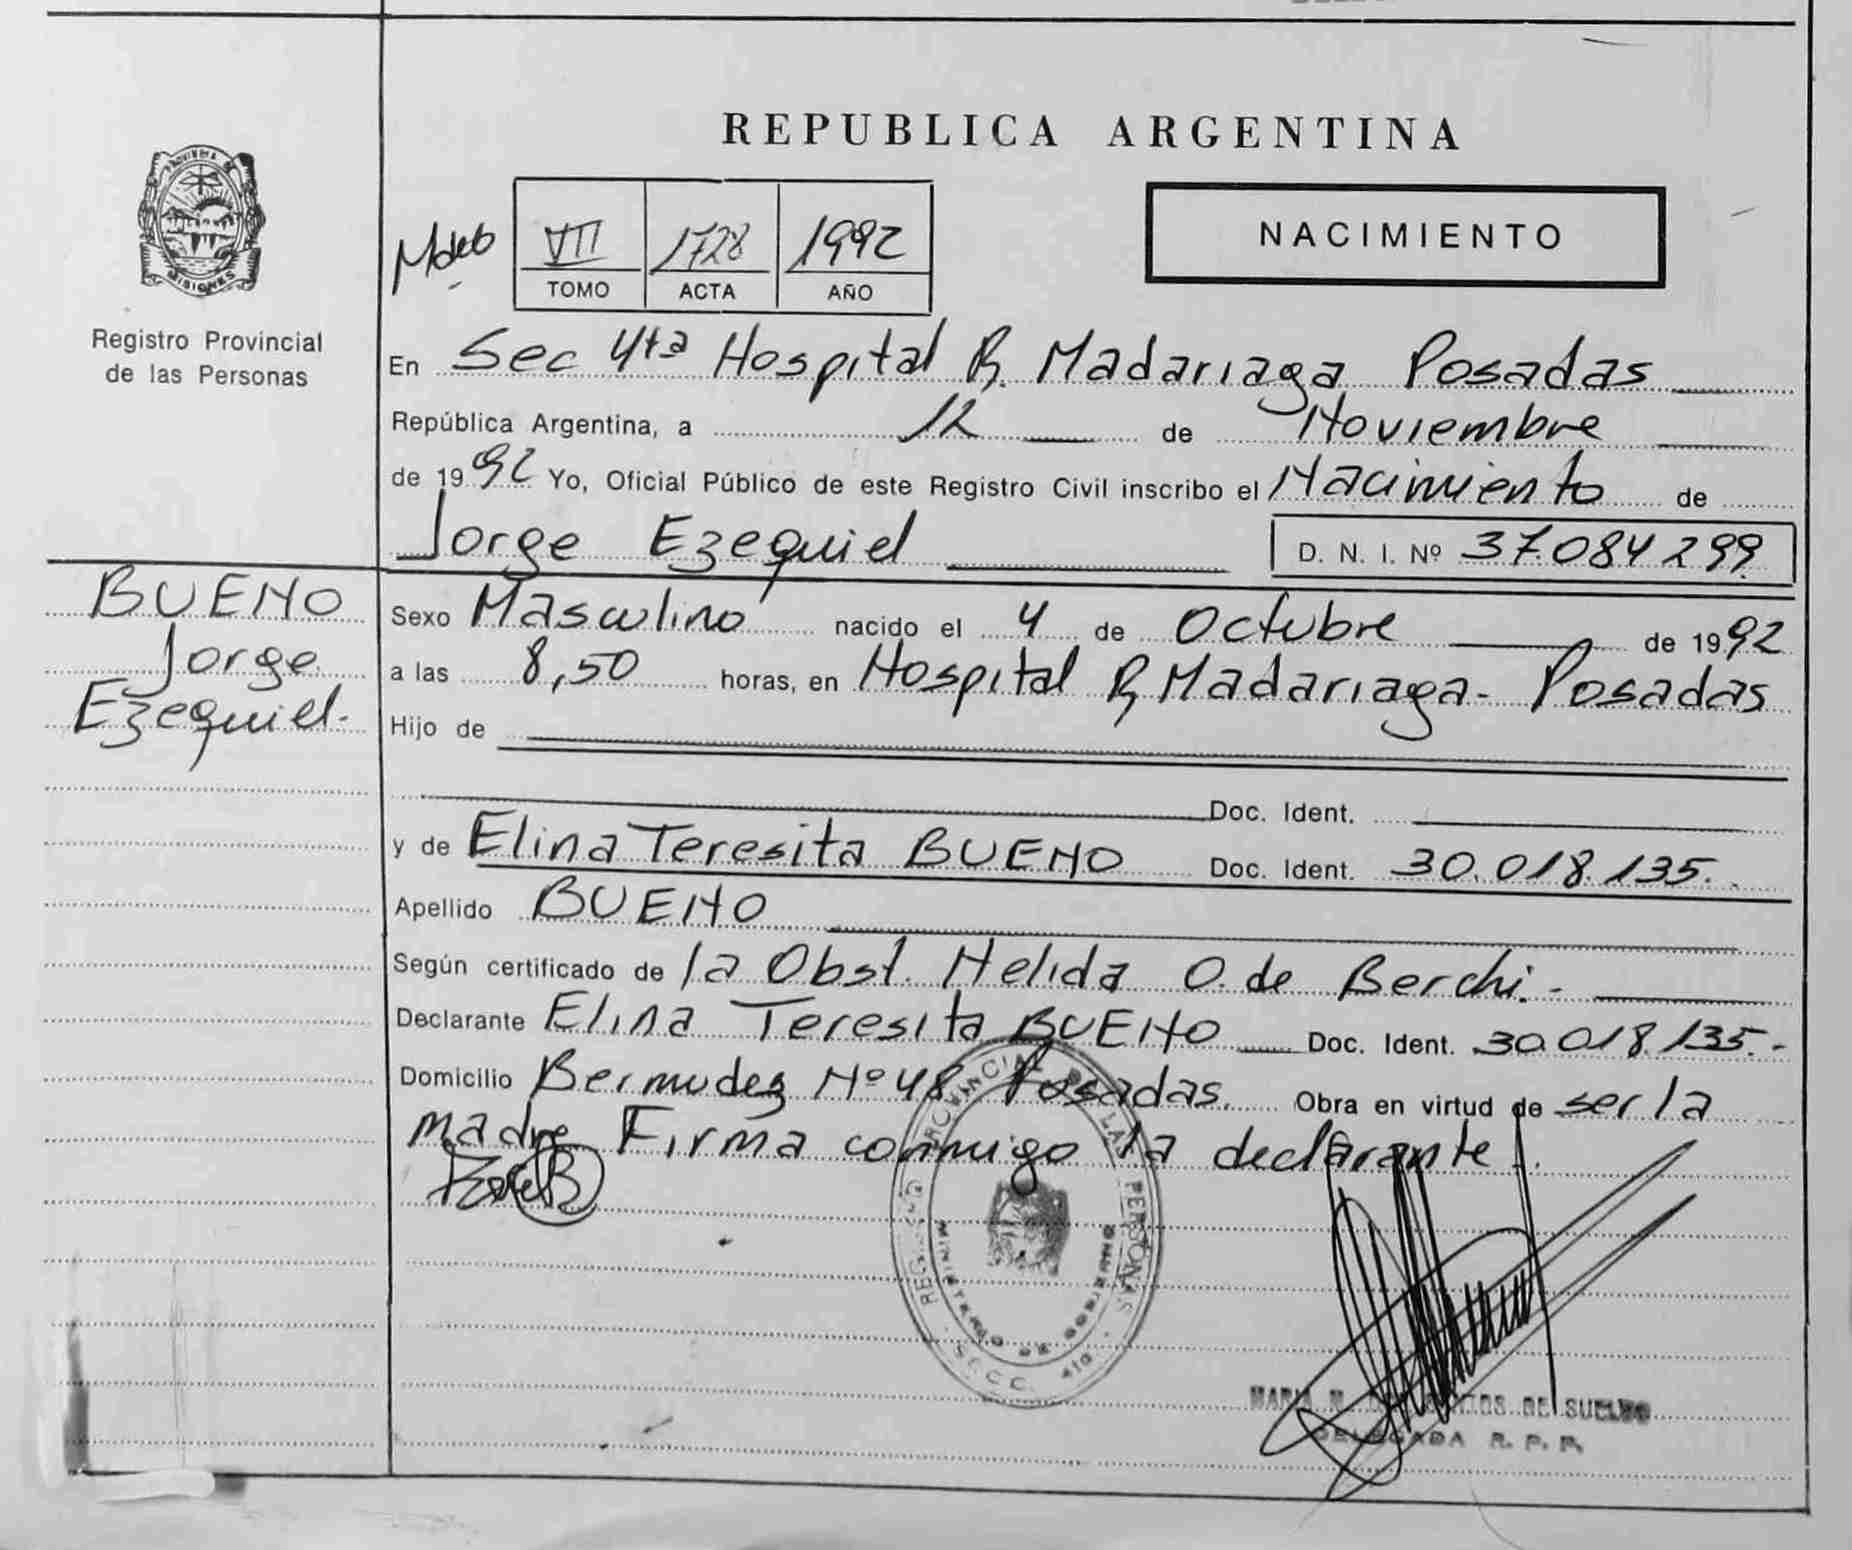 REPUBLICA ARGENTINA
PROVINCIA DE
MISIONES
Registro Provincial
de las Personas
VII 1728 1992
TOMO ACTA AÑO
NACIMIENTO
En Sec 4ta Hospital R. Madariaga Posadas
República Argentina, a 12 de Noviembre
de 1992 Yo, Oficial Público de este Registro Civil inscribo el Nacimiento de
Jorge Ezequiel D. N. I. Nº 37.084299
BUENO
Jorge
Ezequiel.-
Sexo Masculino nacido el 4 de Octubre de 1992
a las 8,50 horas, en Hospital R, Madariaga - Posadas
Hijo de
Doc. Ident.
y de Elina Teresita BUENO Doc. Ident. 30.018.135.
Apellido BUENO
Según certificado de la Obst. Nelida O. de Berchi.-
Declarante Elina Teresita BUENO Doc. Ident. 30.018.135.-
Domicilio Bermudez Nº 48 Posadas. Obra en virtud de ser la
madre Firma conmigo la declarante.
REGISTRO PROVINCIAL DE LAS PERSONAS
MINISTERIO DE GOBIERNO
S.C.C. 4ta.
MARIA M. DE SUELDO
DELEGADA R. P. P.